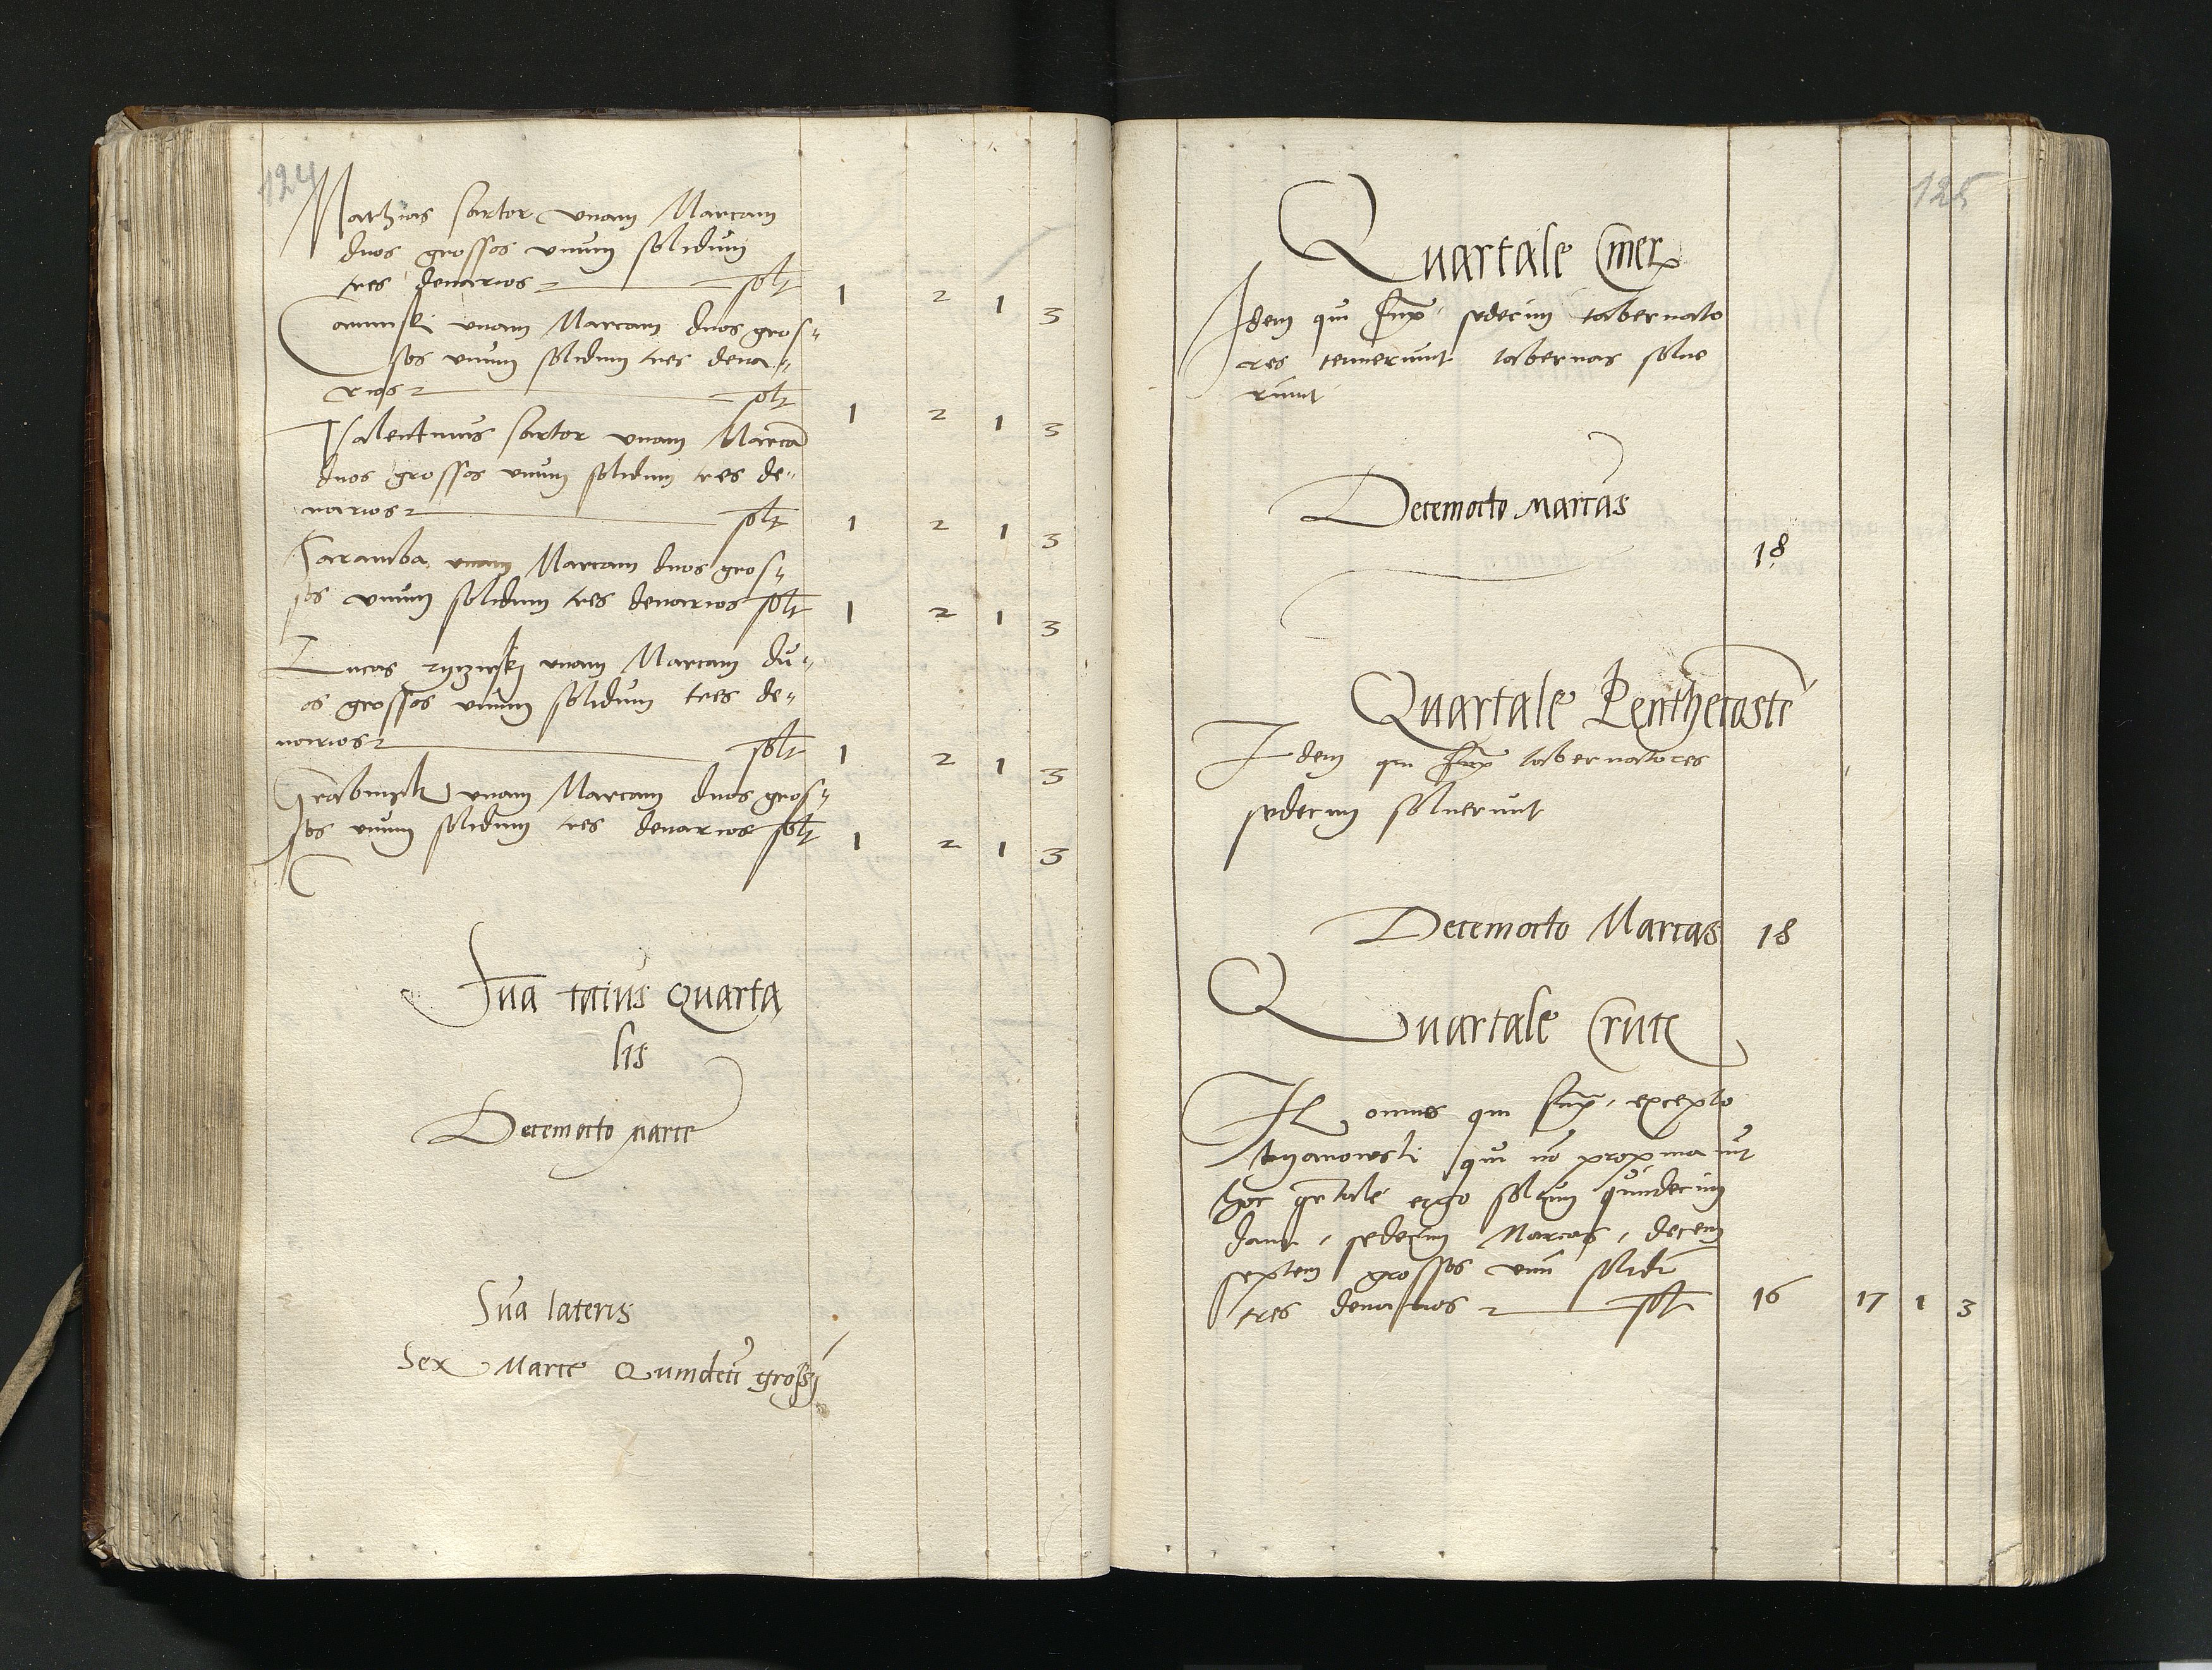 124
Mathias sartor vnam Marcam
duos grossos vnum solidum
tres denarios solt 1 2 1 3
vnam Marcam duos gros-
sos vnum solidum tres dena-
rios solt 1 2 1 3
Valentinus sartor vnam Marcā
duos grossos vnum solidum tres de-
narios solt 1 2 1 3
Saramba vnam Marcam duos gros-
sos vnum solidum tres denarios solt 1 2 1 3
Lucas vnam Marcam du-
os grossos vnum solidum tres de-
narios solt 1 2 1 3
vnam Marcam duos gros-
sos vnum solidum tres denarios solt 1 2 1 3
Sūa toīus Quarta
lis
Decemocto marce
Sūa lateris
Sex Marce Quindecī grossi
125
Quartale Cinerꝝ
Idem qui supꝰ sedecim tabernato
res tenuerunt tabernas solue
runt
Decemocto Marcas
18
Quartale Penthecostē
Idem qui supꝰ tabernatores
sedecim soluerunt
Decemocto Marcas 18
Quartale Crucꝭ
omnes qui supꝰ, excepto
qui nō propinauit
hoc qrtale ergo soltum quindecim
dant, sedecim Marcas, decem
septem grossos vnū solidū
tres denarios solt 16 17 1 3